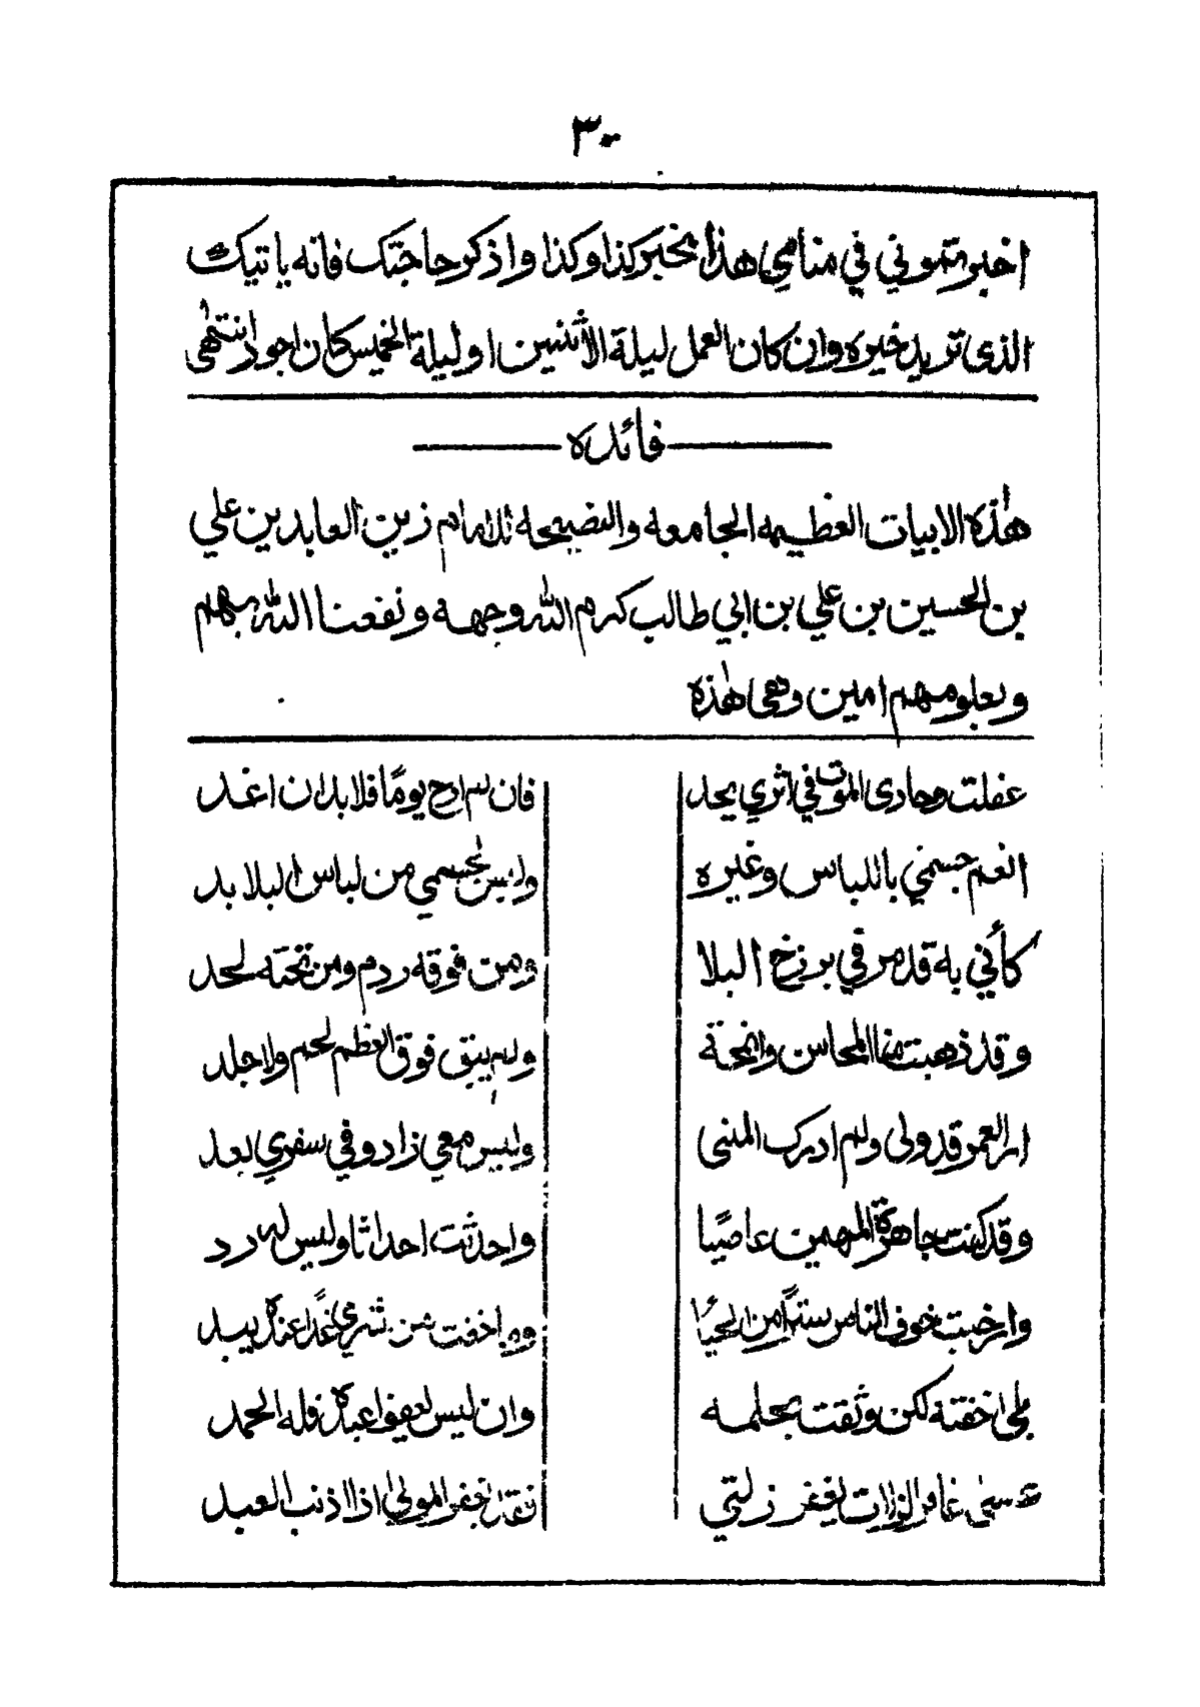 ٣٠
اخبرتموني في منامي هذا بخبر كذا وكذا واذكر حاجتك فانه ياتيك
الذى تريد خيره وان كان العمل ليلة الأثنين او ليلة الخميس كان اجود انتهى
فائده
هذه الابيات العظيمه الجامعه والنصيحه للامام زين العابدين علي
بن الحسين بن علي بن ابي طالب كرم الله وجهه ونفعنا الله بهم
وبعلومهم امين وهى هذه
غفلت وحادى الموت في اثري يحد فان لم ارح يومًا فلا بد ان اغد
انعم جسمي باللباس وغيره وليس لجسمي من لباس البلا بد
كأني به قد مر في برزخ البلا ومن فوقه ردم ومن تحته لحد
وقد ذهبت منا المحاسن وانمحة ولم يبق فوق العظم لحم ولا جلد
ار العمر قد ولى ولم ادرك المنى وليس معي زاد وفي سفري بعد
وقد كنت جاهرة المهيمن عاصيًا واحدثت احداثا وليس له رد
وارخيت خوف الناس سترًا من الحيا وما خفت من شري غدًا عنده يبد
بلى خفته لكن وثقت بحلمه وان ليس يعفو عبده فله الحمد
عسى غافر الزلات يغفر زلتي فقد يغفر المولى اذا اذنب العبد